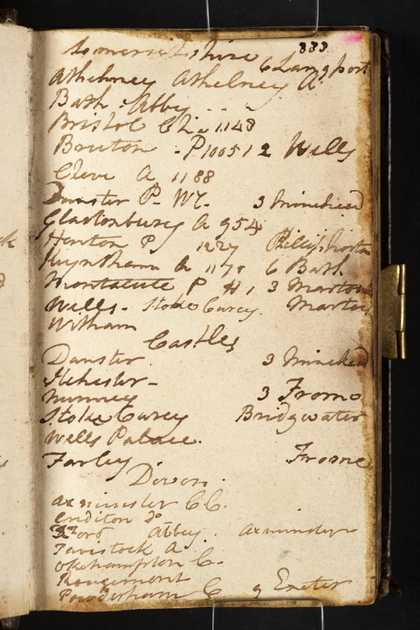 Somersetshire 333
Athelney Athelney A. 6 Langport
Bath - Abby - - -
Bristol Ch. 1148
Bruton - P 1005 12 Wells
Cleve A 1188
Dunster P - W1. 3 Minehead
Glastonbury A 954
Henton P 1227 Philips Norton
Keynsham A 117 6 Bath
Montacute P H 1 3 Martock
Wells - Stoke Curcy. Martock
Witham
Castles
Dunster. 3 Minehead
Ilchester -
Nunney 3 Frome
Stoke Curcy Bridgwater
Wells Palace.
Farley Frome
Devon.
Axminster CC.
Crediton Do
Ford Abbey. Axminster
Tavistock A
Okehampton C.
Rougemont
Powderham C 9 Exeter